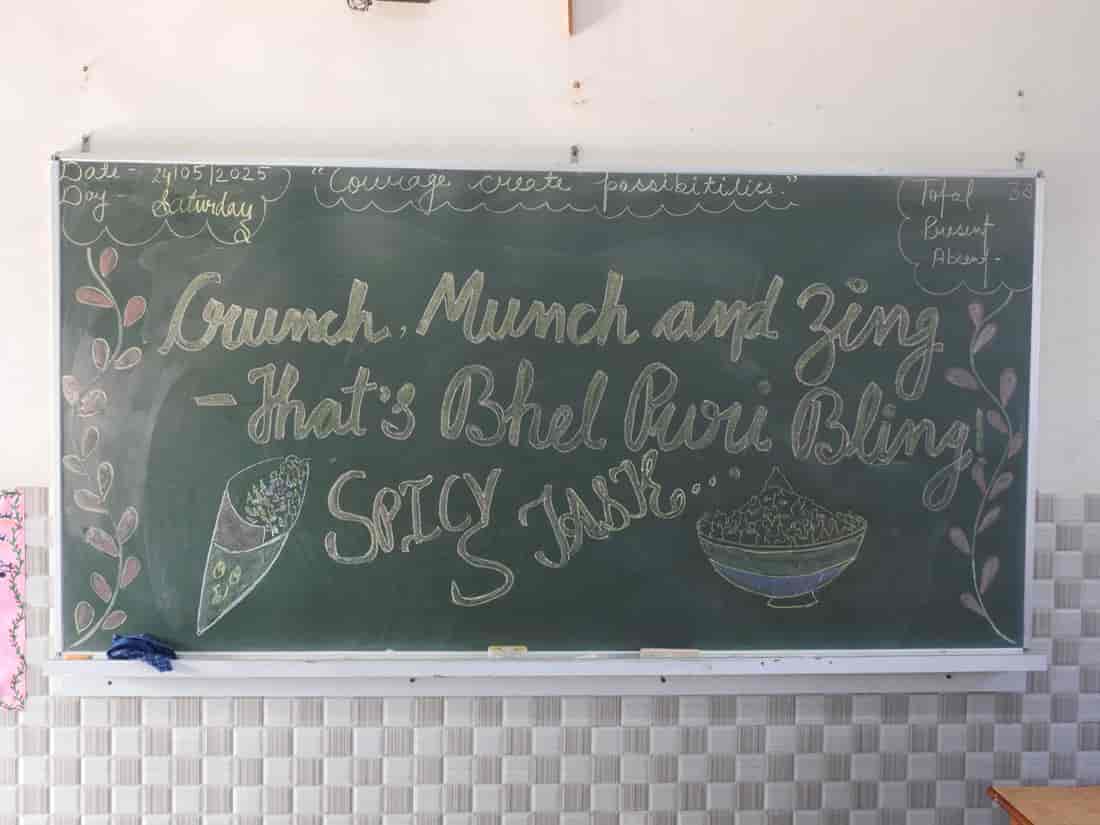 Date - 24/05/2025
Day - Saturday
"Courage create possibitilies."
Total 38
Present
Absent -
Crunch, Munch and Zing
- That's Bhel Puri Bling!
SPICY TASK...